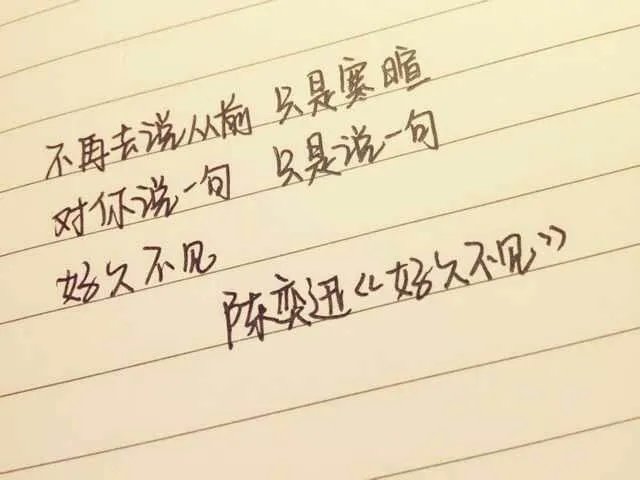 不再去说从前 只是寒暄
对你说一句 只是说一句
好久不见
陈奕迅《好久不见》